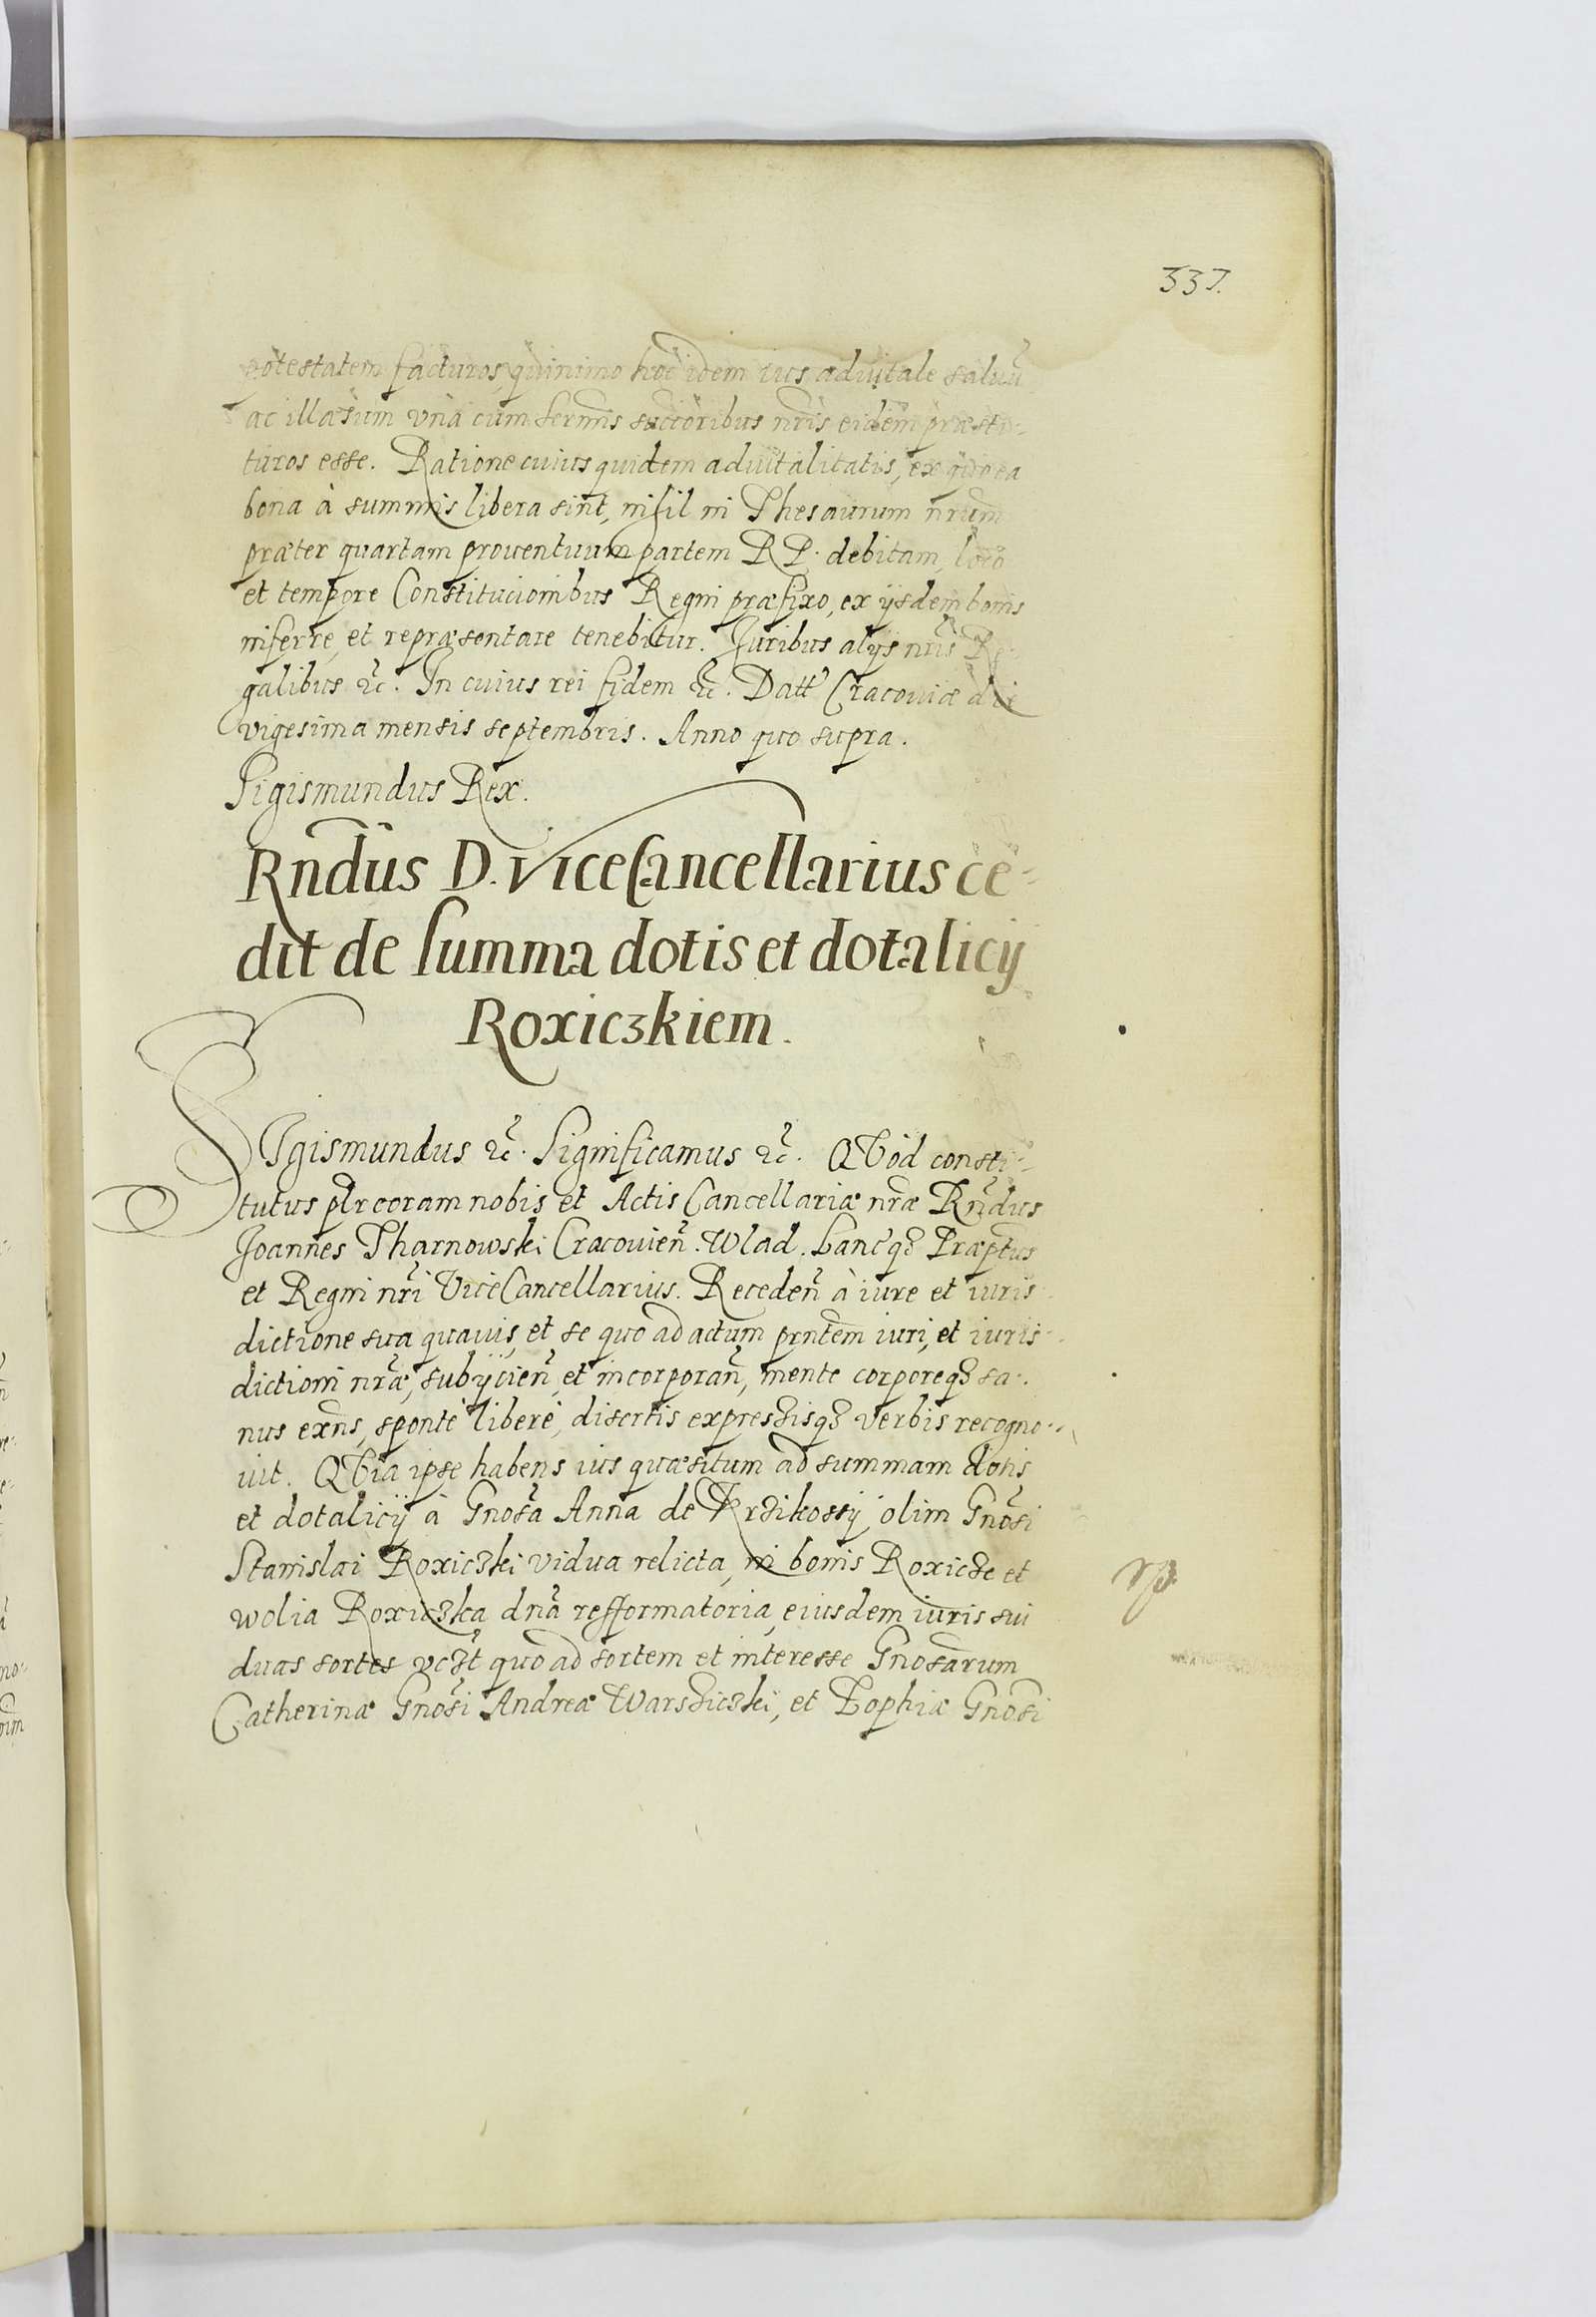 337.
potestatem facturos, quinimo hoc idem ius aduitale saluũ
ac illæsum vnà cum Sermis succoribus nris eidem præsti-
turos esse. Ratione cuius quidem aduitalitatis, ex quo ea
bona à summis libera sint, nihil in Thesaurum nrum
præter quartam prouentuum partem R P. debitam, loco
et tempore Constitucionibus Regni præfixo, ex ijsdem bonis
inferre, et repræsentare tenebitur. Iuribus alijs nris Re-
galibus &c. In cuius rei fidem &c. Datt Cracouiæ die
vigesima mensis septembris. Anno quo supra.
Sigismundus Rex.
Rndus D. ViceCancellarius ce-
dit de summa dotis et dotalicij
Roxiczkiem.
SIgismundus &c. Significamus &c. QVod consti-
tutus plr coram nobis et Actis Cancellariæ nræ Rndus
Joannes Tharnowski Cracouien. Wlad. Lancqȝ Præptus
et Regni nri ViceCancellarius. Receden à iure et iuris-
dictione sua quauis, et se quo ad actum prntem iuri, et iuris-
dictioni nræ, subijcien, et incorporan, mente corporeqȝ sa-
nus exns, sponte libere, disertis expressisqȝ verbis recogno-
uit. QVia ipse habens ius quæsitum ad summam dotis
et dotalicij à Gnosa Anna de Krzikossij olim Gnosi
Stanislai Roxiczki vidua relicta, in bonis Roxicze et
wolia Roxiczka dna refformatoria, eiusdem iuris sui
duas sortes vczt quo ad sortem et interesse Gnosarum
Catherinæ Gnosi Andreæ Warszicski, et Zophiæ Gnosi